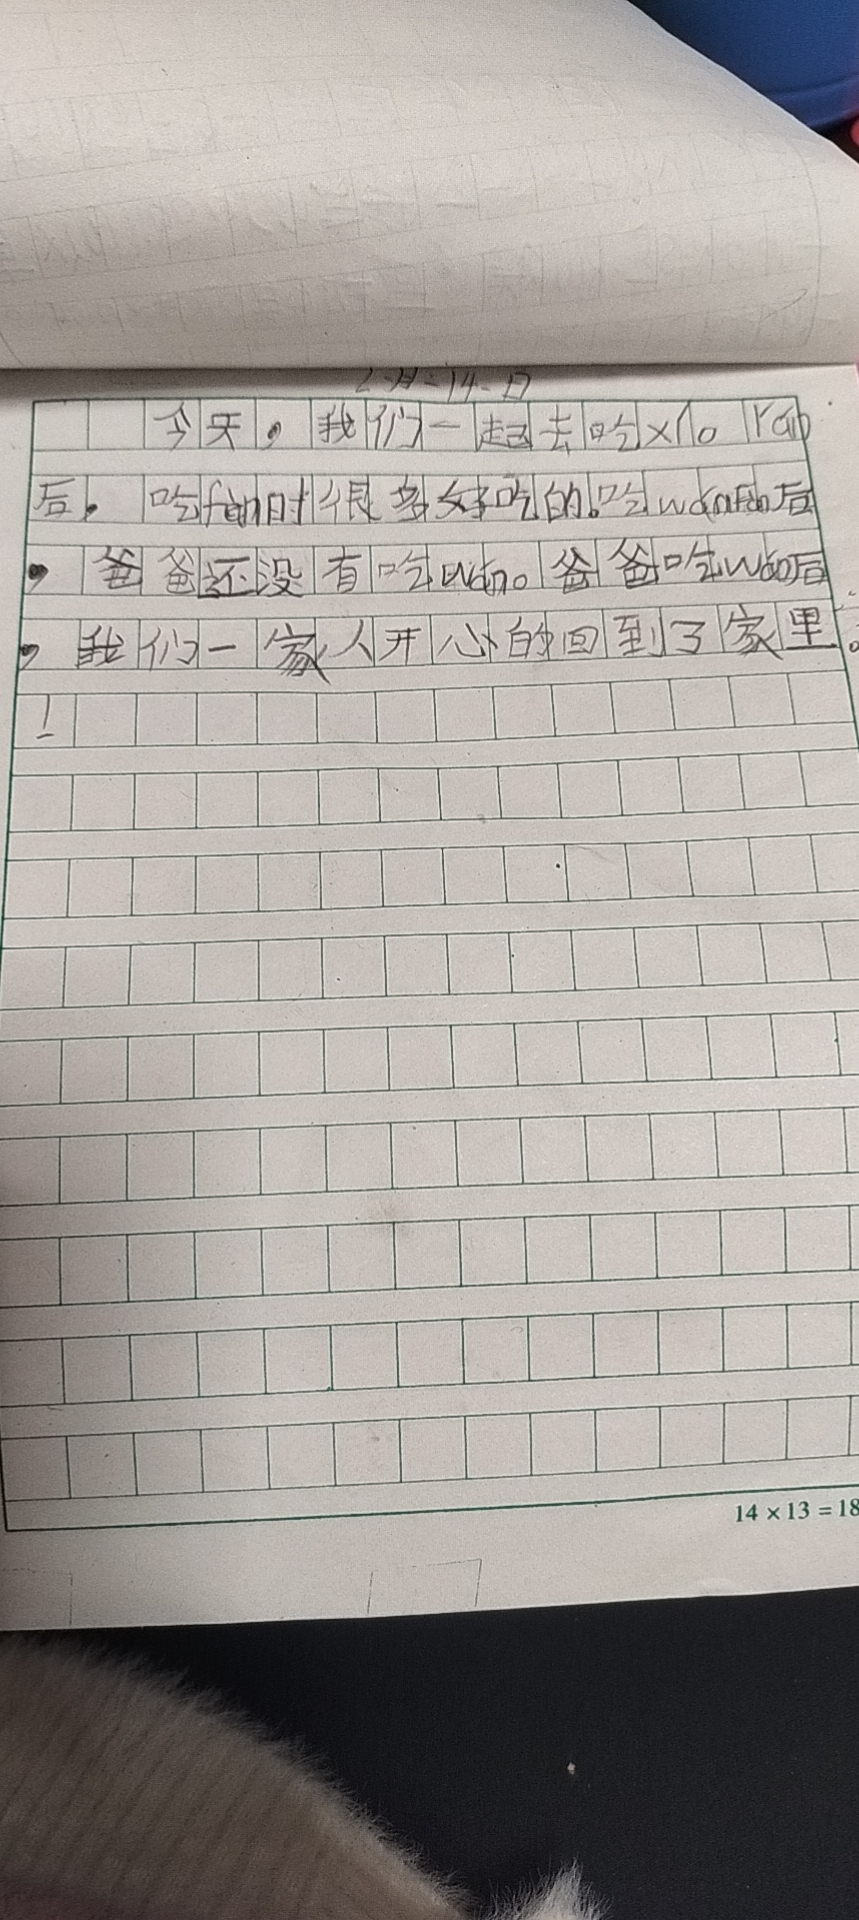 2月14日
今天，我们一起去吃xi。ran
后，吃fan时很多好吃的。吃wanfan后
，爸爸还没有吃wan。爸爸吃wan后
，我们一家人开心的回到了家里。
！
14×13=18